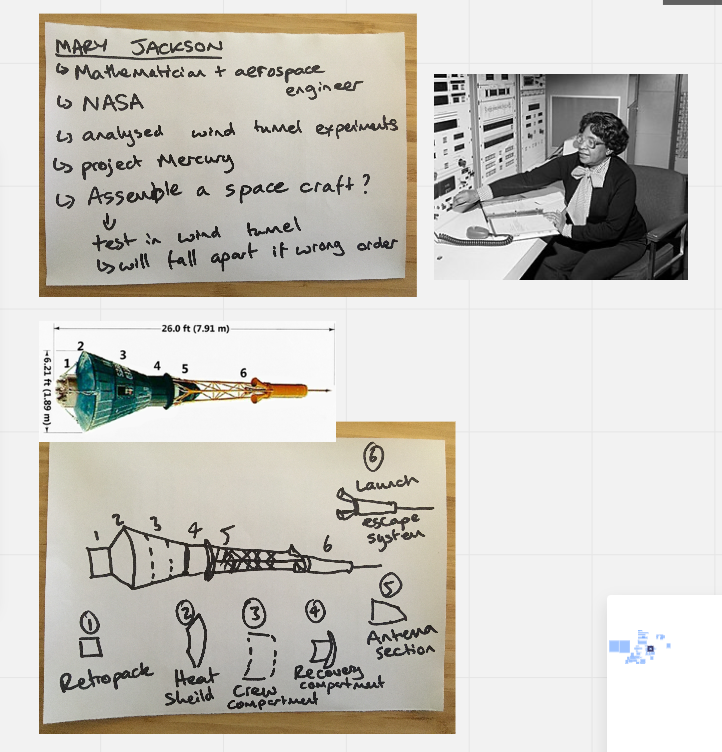 MARY JACKSON
↳ Mathematician + aerospace
engineer
↳ NASA
↳ analysed wind tunnel experiments
↳ project Mercury
↳ Assemble a space craft?
↓
test in wind tunnel
↳ will fall apart if wrong order
26.0 ft (7.91 m)
6.21 ft (1.89 m)
1 2 3 4 5 6
6
Launch
escape
system
1 2 3 4 5 6
1
Retropack
2
Heat
Sheild
3
Crew
compartment
4
Recovery
compartment
5
Antenna
section